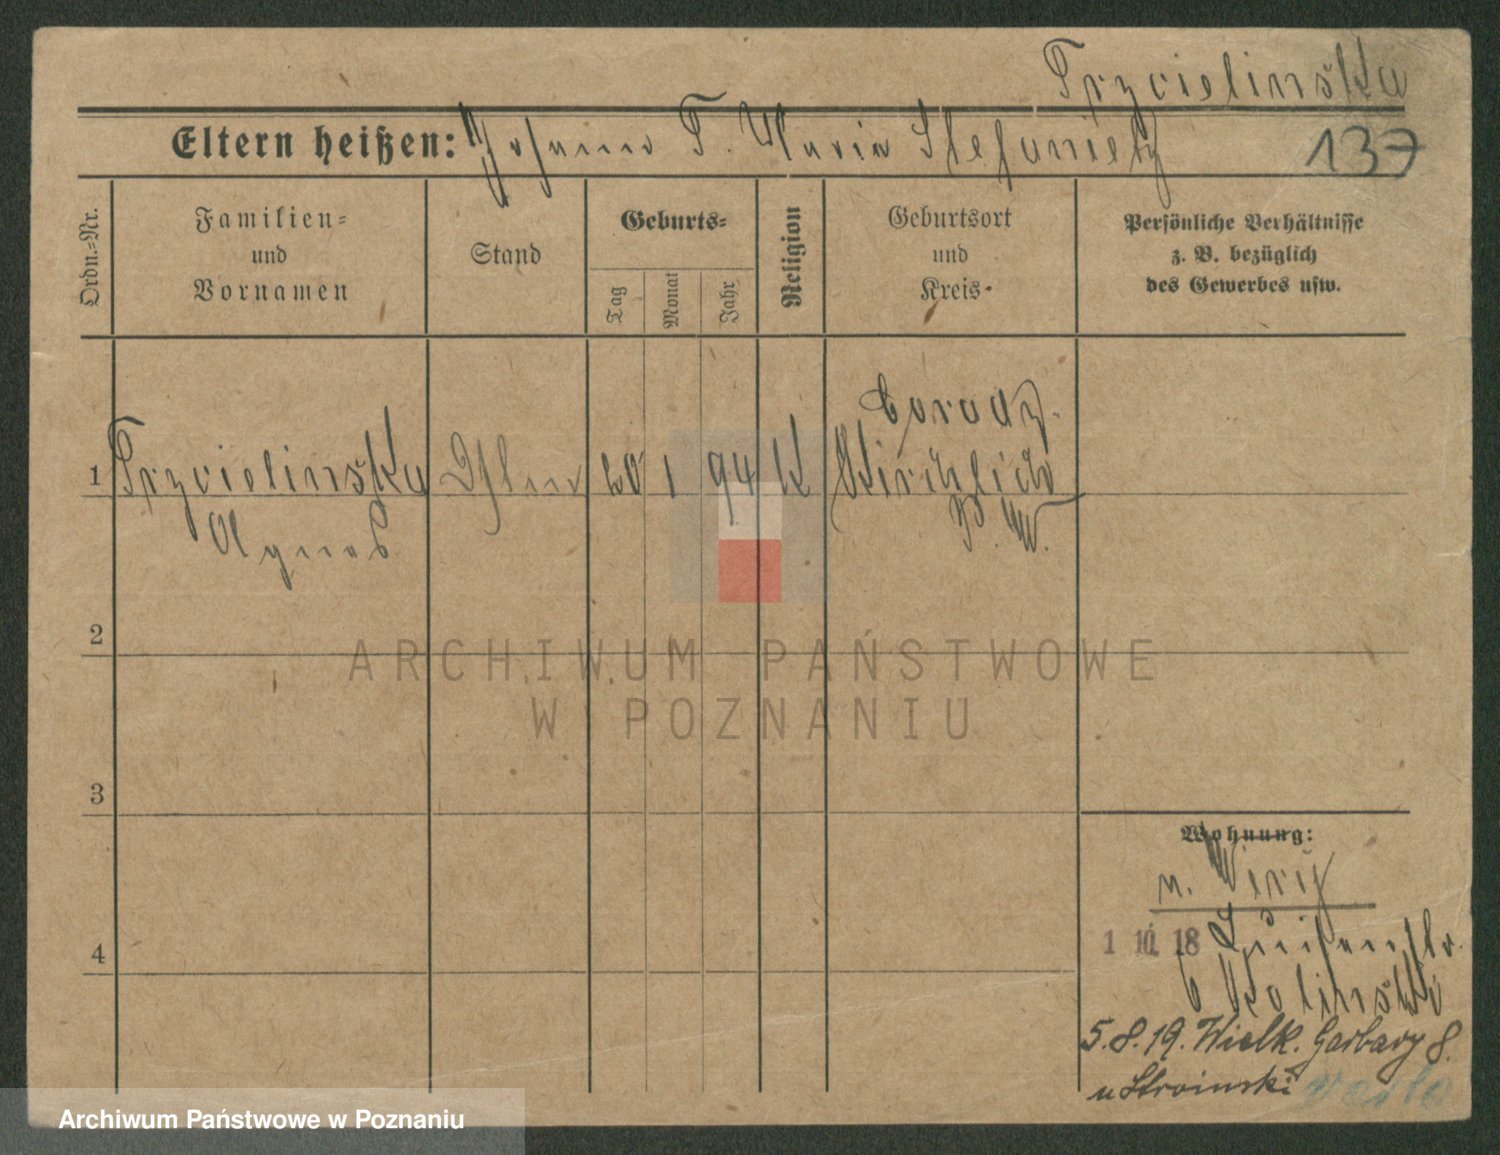 Przcielinska
Eltern heißen: Johann P. Maria Stefanietz
137
Ordn.-Nr.
Familien-
und
Vornamen
Stand
Geburts-
Tag
Monat
Jahr
Religion
Geburtsort
und
Kreis
Persönliche Verhältnisse
z. B. bezüglich
des Gewerbes usw.
1
Przcielinska
Agnes
20 1 94 K
P. W.
2
ARCHIWUM PAŃSTWOWE
W POZNANIU
3
Wohnung:
n.
4
1 10. 18 Luisenstr.
6 Kolinski
5.8.19. Wielk. Garbary 8.
u Stroinski
Archiwum Państwowe w Poznaniu